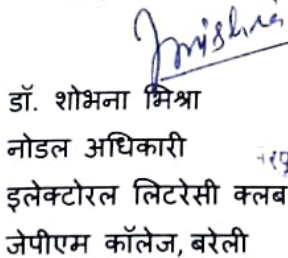 डॉ. शोभना मिश्रा
नोडल अधिकारी
इलेक्टोरल लिटरेसी क्लब
जेपीएम कॉलेज, बरेली